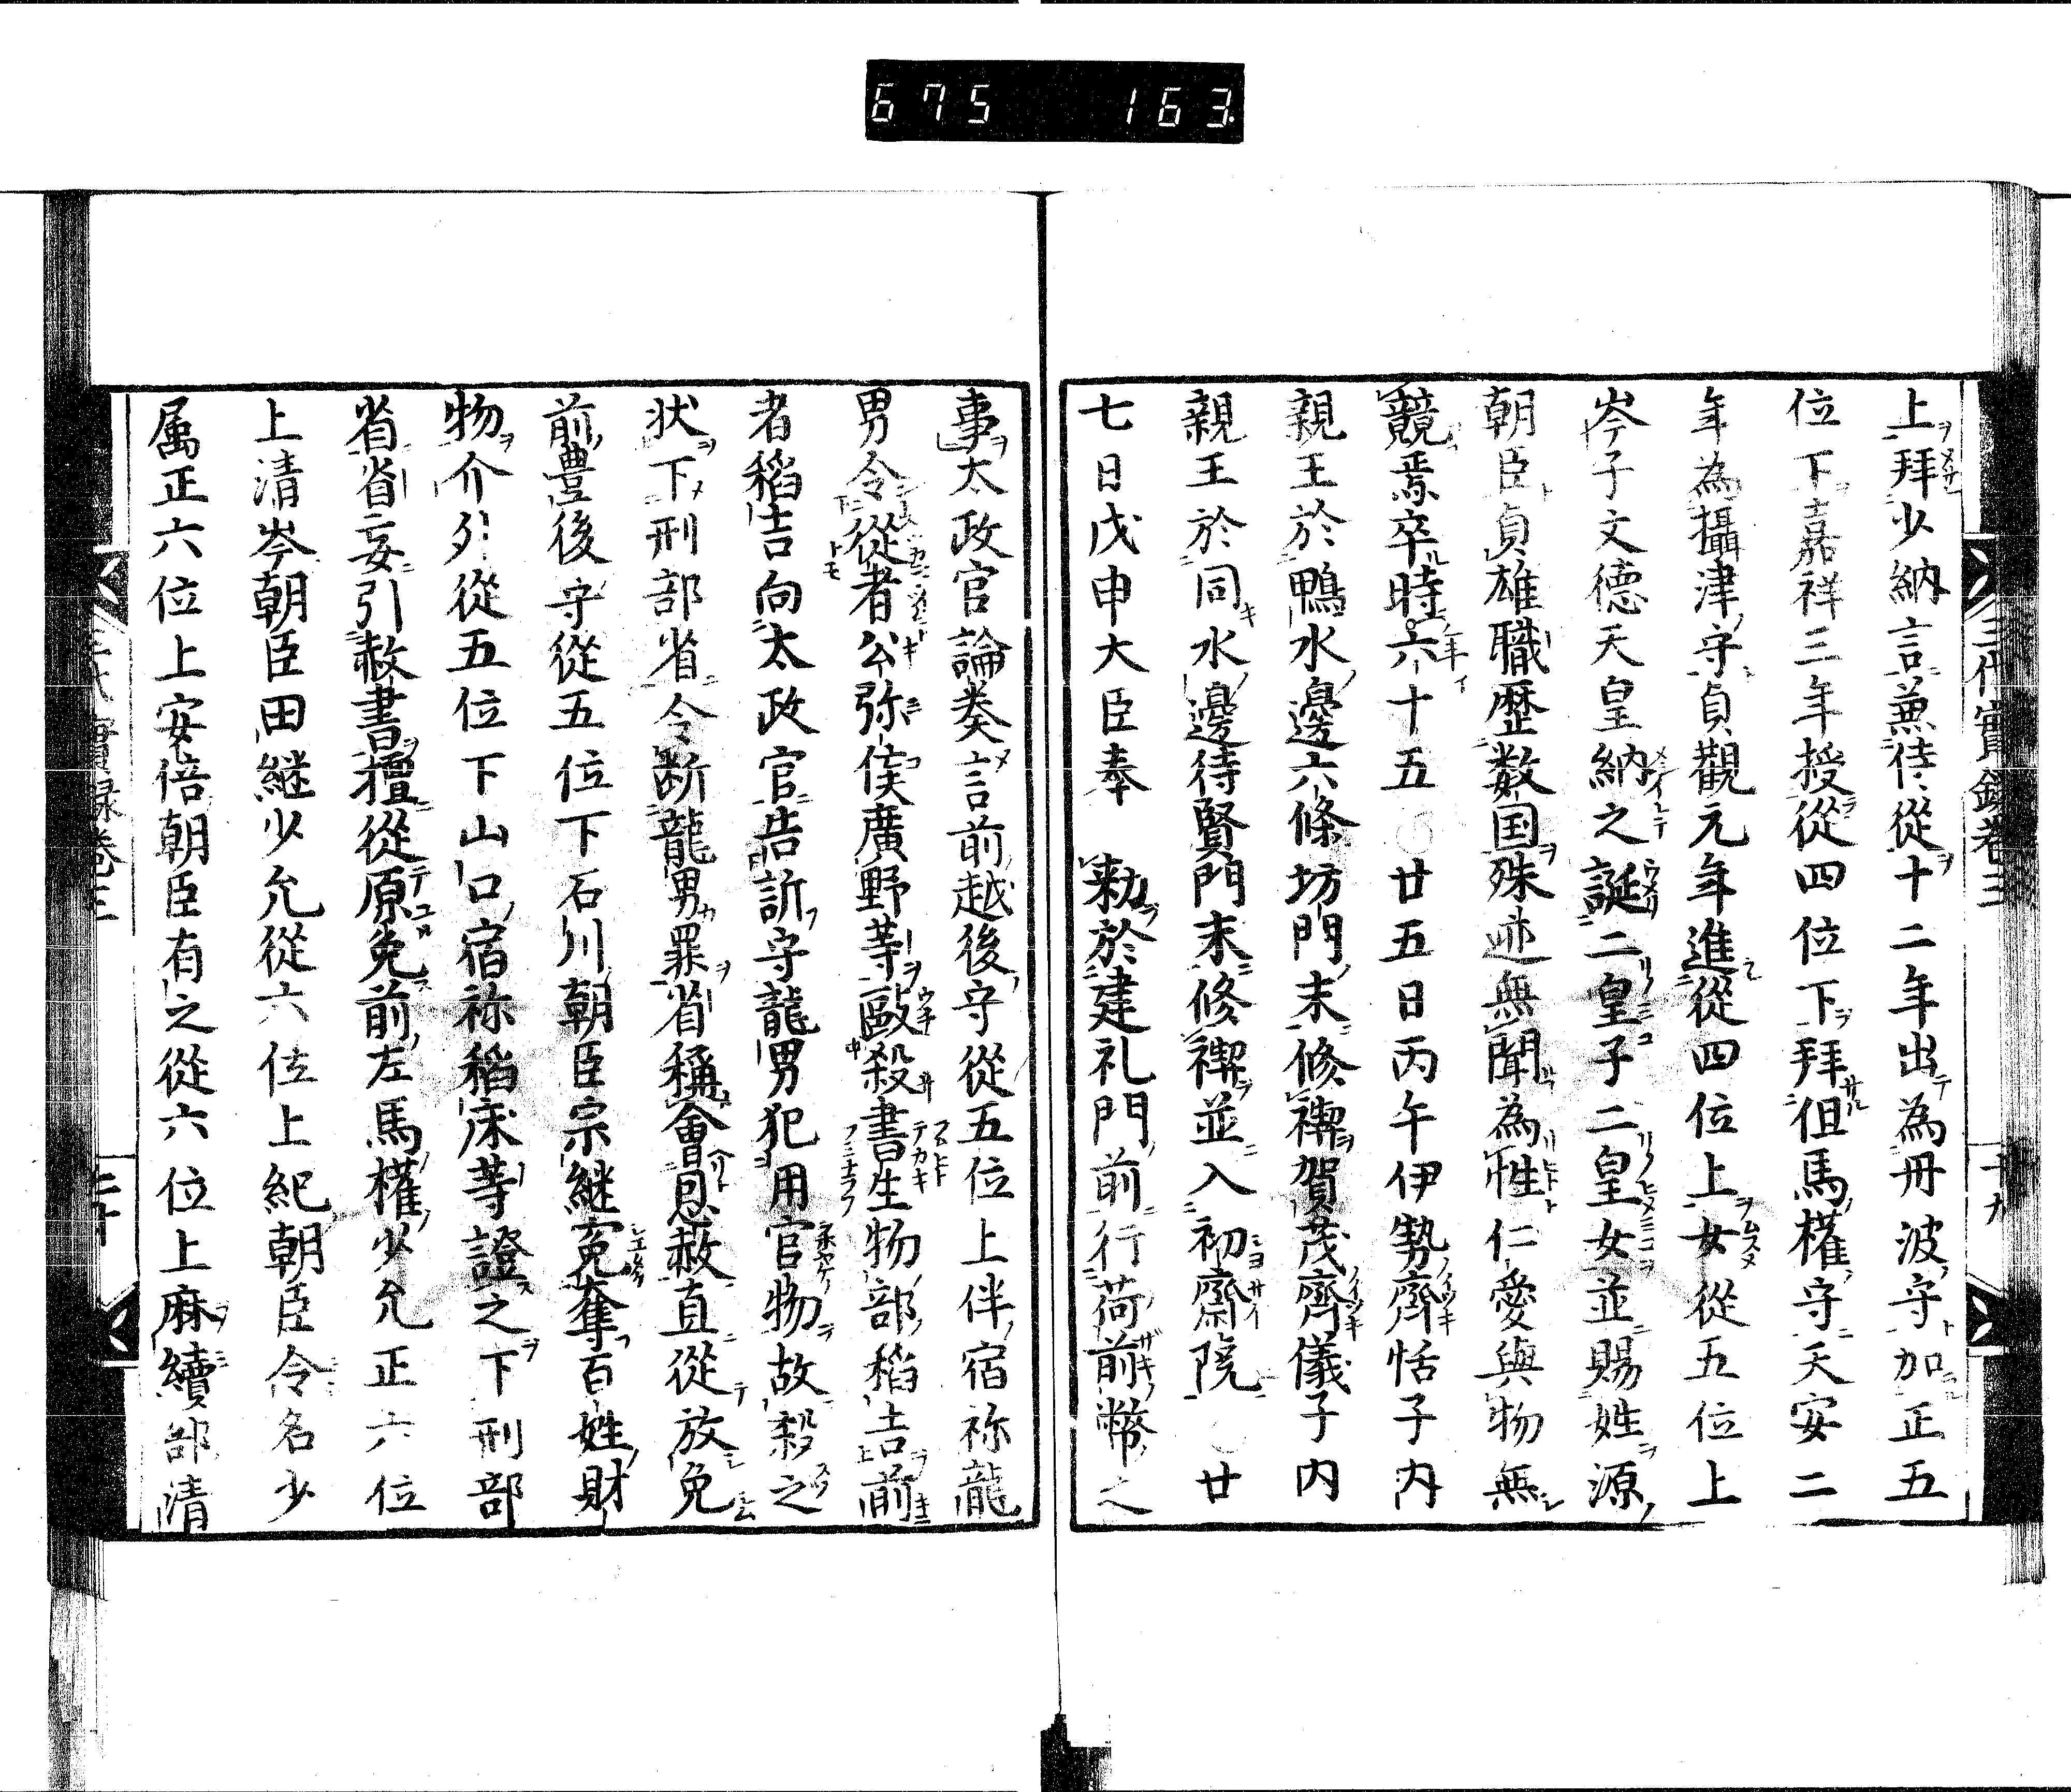 675 163
三代實錄卷三
十九
上拜少納言兼侍從十二年出為丹波守加正五
位下嘉祥三年授從四位下拜但馬權守天安二
年為攝津守貞觀元年進從四位上女從五位上
岑子文德天皇納之誕二皇子二皇女並賜姓源
朝臣貞雄職歷数国殊迹無聞為性仁愛與物無
競焉卒時六十五 廿五日丙午伊勢齊恬子內
親王於鴨水邊六條坊門末修禊賀茂齊儀子內
親王於同水邊待賢門末修禊並入初齋院 廿
七日戊申大臣奉 勅於建礼門前行荷前幣之
事太政官論奏言前越後守從五位上伴宿祢龍
男令從者公弥侯廣野等毆殺書生物部稻吉前
者稻吉向太政官告訴守龍男犯用官物故殺之
状下刑部省令断龍男罪省稱會恩赦直從放免
前豊後守從五位下石川朝臣宗継寃奪百姓財
物介外從五位下山口宿祢稻床等證之下刑部
省省妄引赦書擅從原免前左馬權少允正六位
上清岑朝臣田継少允從六位上紀朝臣令名少
属正六位上安倍朝臣有之從六位上麻續部清
三代實録卷三
二十